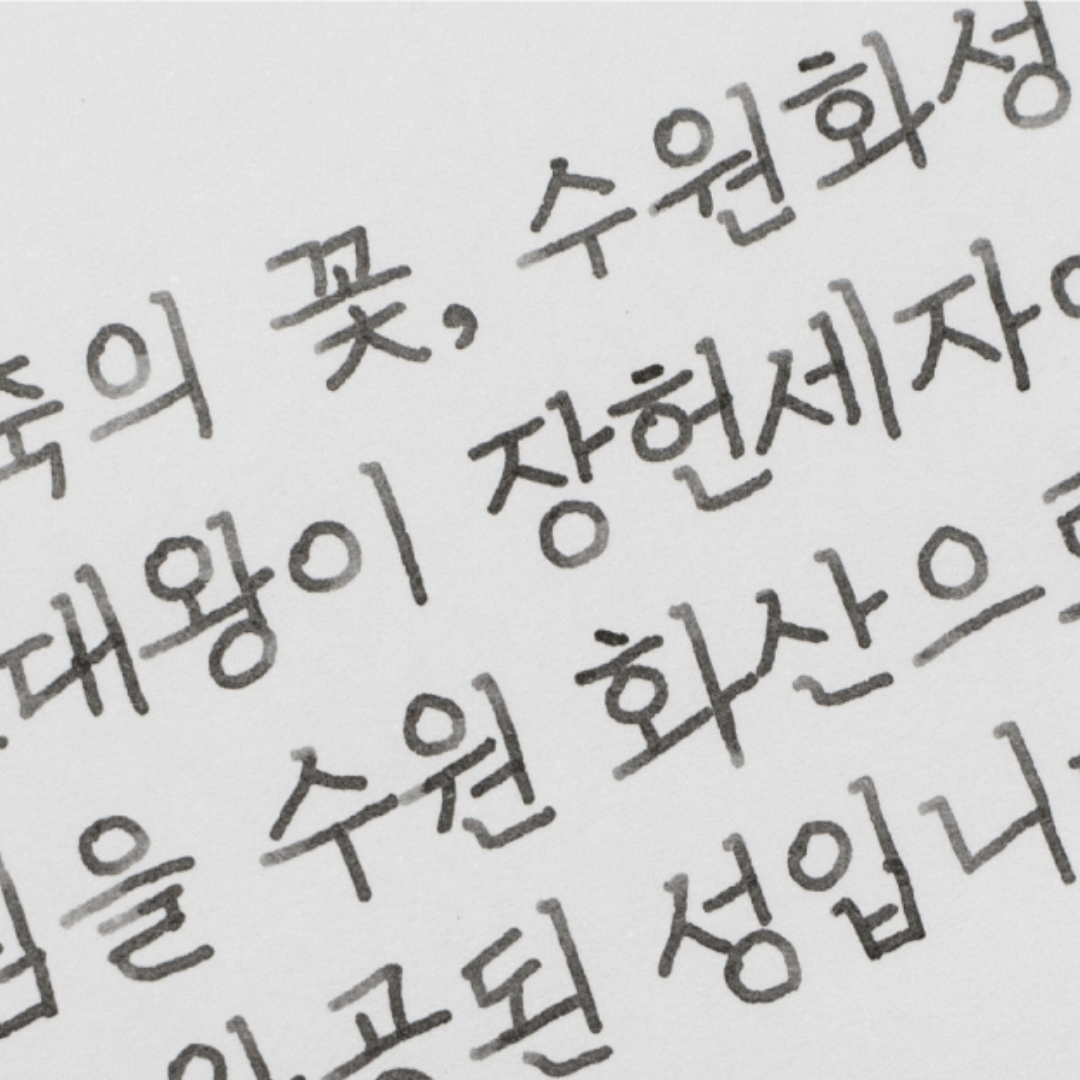 축의 꽃, 수원화성
대왕이 장헌세자
을 수원 화산으로
완공된 성입니